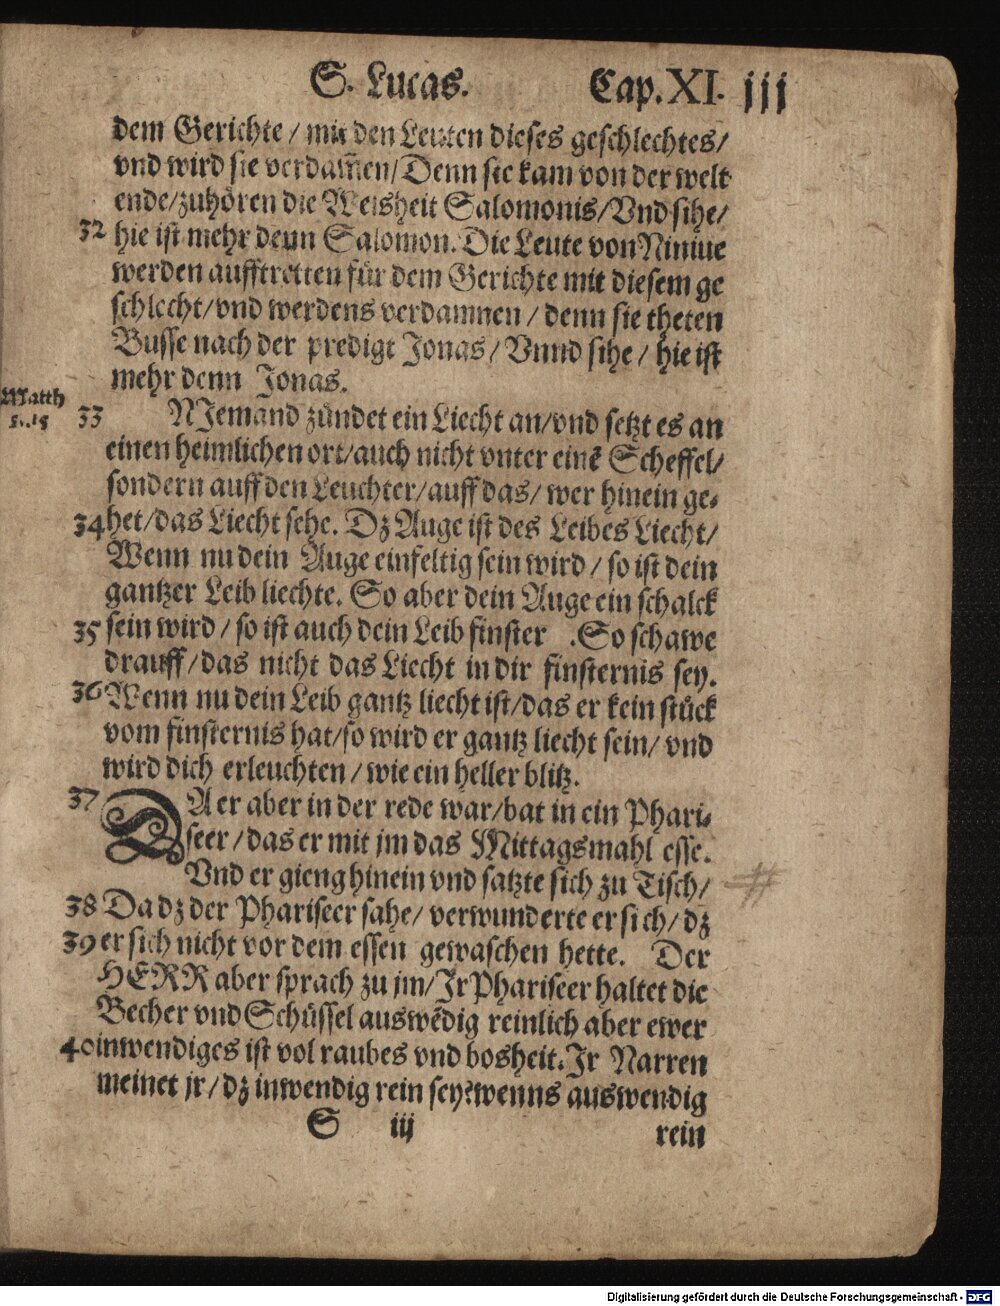 S. Lucas. Cap. XI. iii
dem Gerichte / mit den Leuten dieses geschlechtes/
vnd wird sie verdam̃en/Denn sie kam von der welt
ende/zuhören die Weisheit Salomonis/Vnd sihe/
32 hie ist mehr denn Salomon. Die Leute von Niniue
werden aufftretten für dem Gerichte mit diesem ge
schlecht/vnd werdens verdamnen / denn sie theten
Busse nach der predigt Jonas / Vnnd sihe / hie ist
mehr denn Jonas.
Matth
5.15
33 NJemand zündet ein Liecht an/vnd setzt es an
einen heimlichen ort/auch nicht vnter einē Scheffel/
sondern auff den Leuchter/auff das/ wer hinein ge-
34 het/das Liecht sehe. Dz Auge ist des Leibes Liecht/
Wenn nu dein Auge einfeltig sein wird / so ist dein
gantzer Leib liechte. So aber dein Auge ein schalck
35 sein wird / so ist auch dein Leib finster . So schawe
drauff/das nicht das Liecht in dir finsternis sey.
36 Wenn nu dein Leib gantz liecht ist/das er kein stück
vom finsternis hat/so wird er gantz liecht sein/ vnd
wird dich erleuchten / wie ein heller blitz.
37 DA er aber in der rede war/bat in ein Phari-
seer / das er mit jm das Mittagsmahl esse.
Vnd er gieng hinein vnd satzte sich zu Tisch/
38 Da dz der Phariseer sahe/ verwunderte er sich/ dz
39 er sich nicht vor dem essen gewaschen hette. Der
HERR aber sprach zu jm/Jr Phariseer haltet die
Becher vnd Schüssel auswēdig reinlich aber ewer
40 inwendiges ist vol raubes vnd bosheit. Jr Narren
meinet jr / dz inwendig rein sey? wenns auswendig
S iij rein
Digitalisierung gefördert durch die Deutsche Forschungsgemeinschaft - DFG